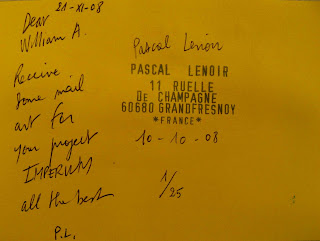 21-XI-08
Dear
William A.
Receive
Some mail
art for
your project
IMPERIUM
all the best
P.L.
Pascal Lenoir
PASCAL LENOIR
11 RUELLE
DE CHAMPAGNE
60680 GRANDFRESNOY
*FRANCE*
10-10-08
1/25